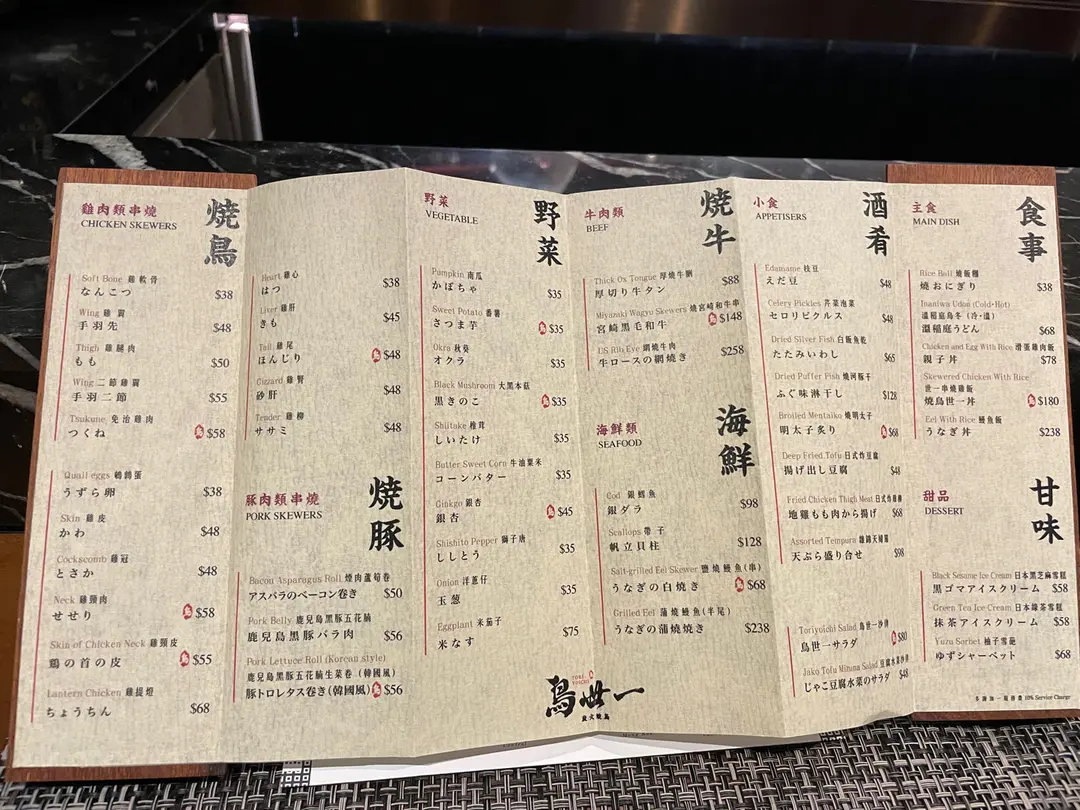 雞肉類串燒
CHICKEN SKEWERS
焼鳥
Soft Bone 雞軟骨
なんこつ $38
Wing 雞翼
手羽先 $48
Thigh 雞腿肉
もも $50
Wing 二節雞翼
手羽二節 $55
Tsukune 免治雞肉
つくね $58
Quail eggs 鵪鶉蛋
うずら卵 $38
Skin 雞皮
かわ $48
Cockscomb 雞冠
とさか $48
Neck 雞頸肉
せせり $58
Skin of Chicken Neck 雞頸皮
鶏の首の皮 $55
Lantern Chicken 雞提燈
ちょうちん $68
Heart 雞心
はつ $38
Liver 雞肝
きも $45
Tail 雞尾
ぼんじり $48
Gizzard 雞腎
砂肝 $48
Tender 雞柳
ササミ $48
豚肉類串燒
PORK SKEWERS
焼豚
Bacon Asparagus Roll 煙肉蘆筍卷
アスパラのベーコン巻き $50
Pork Belly 鹿兒島黑豚五花腩
鹿児島黒豚バラ肉 $56
Pork Lettuce Roll (Korean style)
鹿兒島黑豚五花腩生菜卷 (韓國風)
豚トロレタス巻き(韓國風) $56
野菜
VEGETABLE
野菜
Pumpkin 南瓜
かぼちゃ $35
Sweet Potato 番薯
さつま芋 $35
Okra 秋葵
オクラ $35
Black Mushroom 大黑本菇
黒きのこ $35
Shiitake 椎茸
しいたけ $35
Butter Sweet Corn 牛油粟米
コーンバター $35
Ginkgo 銀杏
銀杏 $45
Shishito Pepper 獅子唐
ししとう $35
Onion 洋蔥仔
玉葱 $35
Eggplant 米茄子
米なす $75
牛肉類
BEEF
焼牛
Thick Ox Tongue 厚燒牛脷
厚切り牛タン $88
Miyazaki Wagyu Skewers 燒宮崎和牛串
宮崎黒毛和牛 $148
US Rib Eye 網燒牛肉
牛ロースの網焼き $258
海鮮類
SEAFOOD
海鮮
Cod 銀鱈魚
銀ダラ $98
Scallops 帶子
帆立貝柱 $128
Salt-grilled Eel Skewer 鹽燒鰻魚(串)
うなぎの白焼き $68
Grilled Eel 蒲燒鰻魚(半尾)
うなぎの蒲焼焼き $238
鳥世一
TORI
YOICHI
炭火焼鳥
小食
APPETISERS
酒肴
Edamame 枝豆
えだ豆 $48
Celery Pickles 芹菜泡菜
セロリピクルス $48
Dried Silver Fish 白飯魚乾
たたみいわし $65
Dried Puffer Fish 燒河豚干
ふぐ味淋干し $128
Broiled Mentaiko 燒明太子
明太子炙り $68
Deep Fried Tofu 日式炸豆腐
揚げ出し豆腐 $48
Fried Chicken Thigh Meat 日式炸雞
地鶏もも肉から揚げ $68
Assorted Tempura 雜錦天婦羅
天ぷら盛り合せ $98
Toriyoichi Salad 鳥世一沙律
鳥世一サラダ $80
Jako Tofu Mizuna Salad 豆腐水菜沙律
じゃこ豆腐水菜のサラダ $48
主食
MAIN DISH
食事
Rice Ball 燒飯糰
焼おにぎり $38
Inaniwa Udon (Cold・Hot)
溫稻庭烏冬 (冷・溫)
温稲庭うどん $68
Chicken and Egg With Rice 滑蛋雞肉飯
親子丼 $78
Skewered Chicken With Rice
世一串燒雞飯
焼鳥世一丼 $180
Eel With Rice 鰻魚飯
うなぎ丼 $238
甜品
DESSERT
甘味
Black Sesame Ice Cream 日本黑芝麻雪糕
黒ゴマアイスクリーム $58
Green Tea Ice Cream 日本綠茶雪糕
抹茶アイスクリーム $58
Yuzu Sorbet 柚子雪葩
ゆずシャーベット $68
另設加一服務費 10% Service Charge